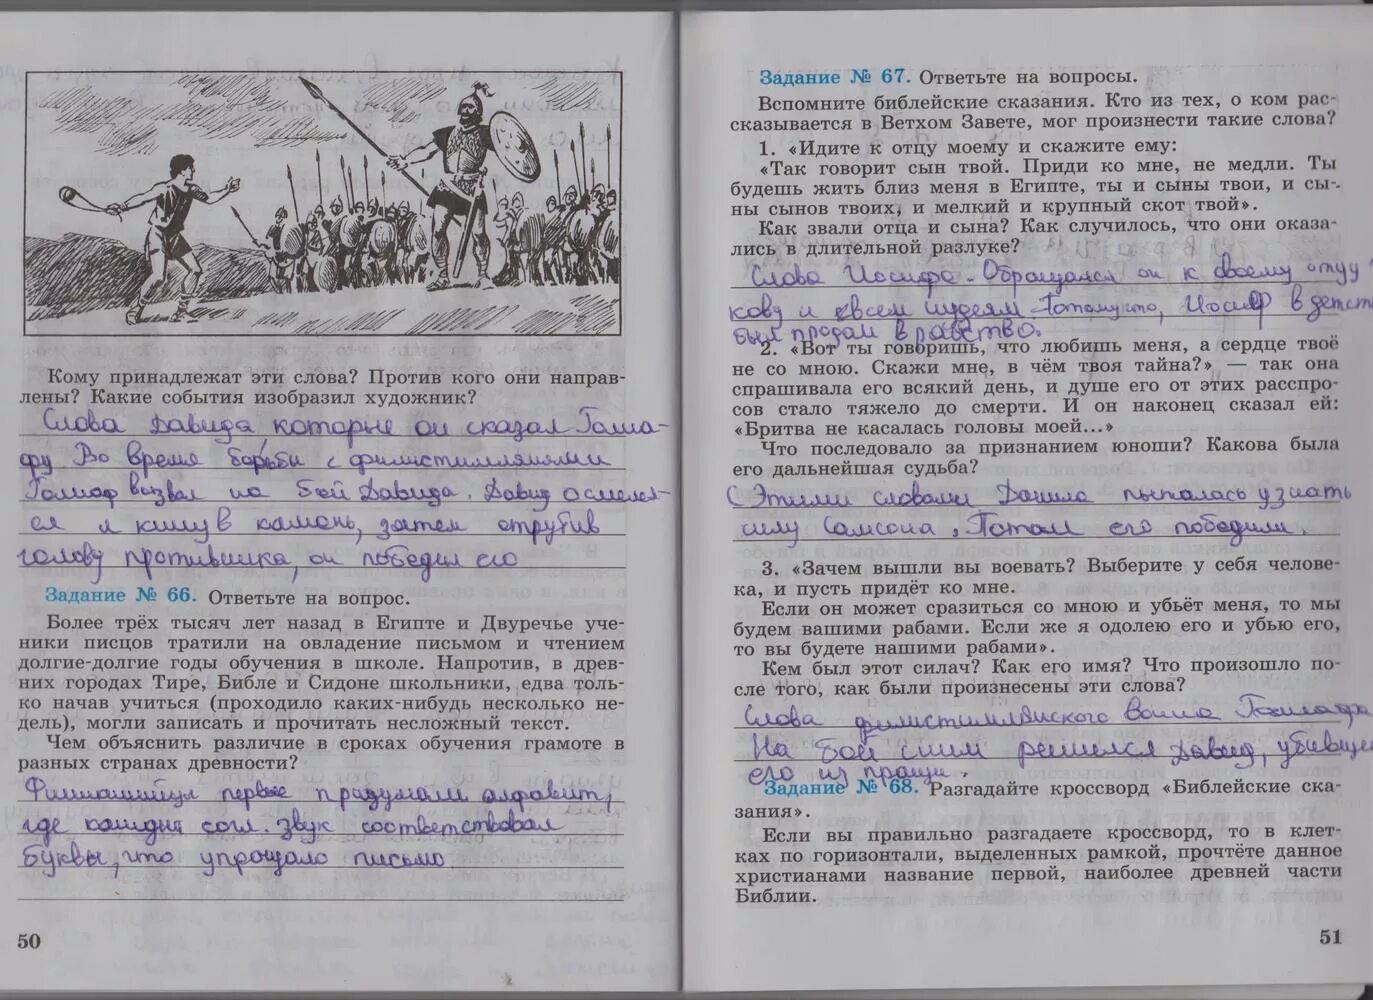 Кому принадлежат эти слова? Против кого они направ-
лены? Какие события изобразил художник?
Слова Давида, которые он сказал Голиа-
фу Во время борьбы с филистимлянами
Голиаф вызвал на бой Давида. Давид осмелел-
ся и кинув камень, затем отрубив
голову противника, он победил его
Задание № 66. Ответьте на вопрос.
Более трёх тысяч лет назад в Египте и Двуречье уче-
ники писцов тратили на овладение письмом и чтением
долгие-долгие годы обучения в школе. Напротив, в древ-
них городах Тире, Библе и Сидоне школьники, едва толь-
ко начав учиться (проходило каких-нибудь несколько не-
дель), могли записать и прочитать несложный текст.
Чем объяснить различие в сроках обучения грамоте в
разных странах древности?
первые придумали алфавит,
где каждый согл. звук соответствовал
буквы, что упрощало письмо
50
Задание № 67. Ответьте на вопросы.
Вспомните библейские сказания. Кто из тех, о ком рас-
сказывается в Ветхом Завете, мог произнести такие слова?
1. «Идите к отцу моему и скажите ему:
«Так говорит сын твой. Приди ко мне, не медли. Ты
будешь жить близ меня в Египте, ты и сыны твои, и сы-
ны сынов твоих, и мелкий и крупный скот твой».
Как звали отца и сына? Как случилось, что они оказа-
лись в длительной разлуке?
Слова Иосифа. Обращался он к своему отцу
кову и всем иудеям Потому что, Иосиф в детст
был продан в рабство.
2. «Вот ты говоришь, что любишь меня, а сердце твоё
не со мною. Скажи мне, в чём твоя тайна?» — так она
спрашивала его всякий день, и душе его от этих расспро-
сов стало тяжело до смерти. И он наконец сказал ей:
«Бритва не касалась головы моей...»
Что последовало за признанием юноши? Какова была
его дальнейшая судьба?
С Этими словами Далила пыталась узнать
силу Самсона, Потом его победили.
3. «Зачем вышли вы воевать? Выберите у себя челове-
ка, и пусть придёт ко мне.
Если он может сразиться со мною и убьёт меня, то мы
будем вашими рабами. Если же я одолею его и убью его,
то вы будете нашими рабами».
Кем был этот силач? Как его имя? Что произошло по-
сле того, как были произнесены эти слова?
Слова филистимлянского воина Голиафа
На бой с ним решился Давид, убивше
его из пращи.
Задание № 68. Разгадайте кроссворд «Библейские ска-
зания».
Если вы правильно разгадаете кроссворд, то в клет-
ках по горизонтали, выделенных рамкой, прочтёте данное
христианами название первой, наиболее древней части
Библии.
51